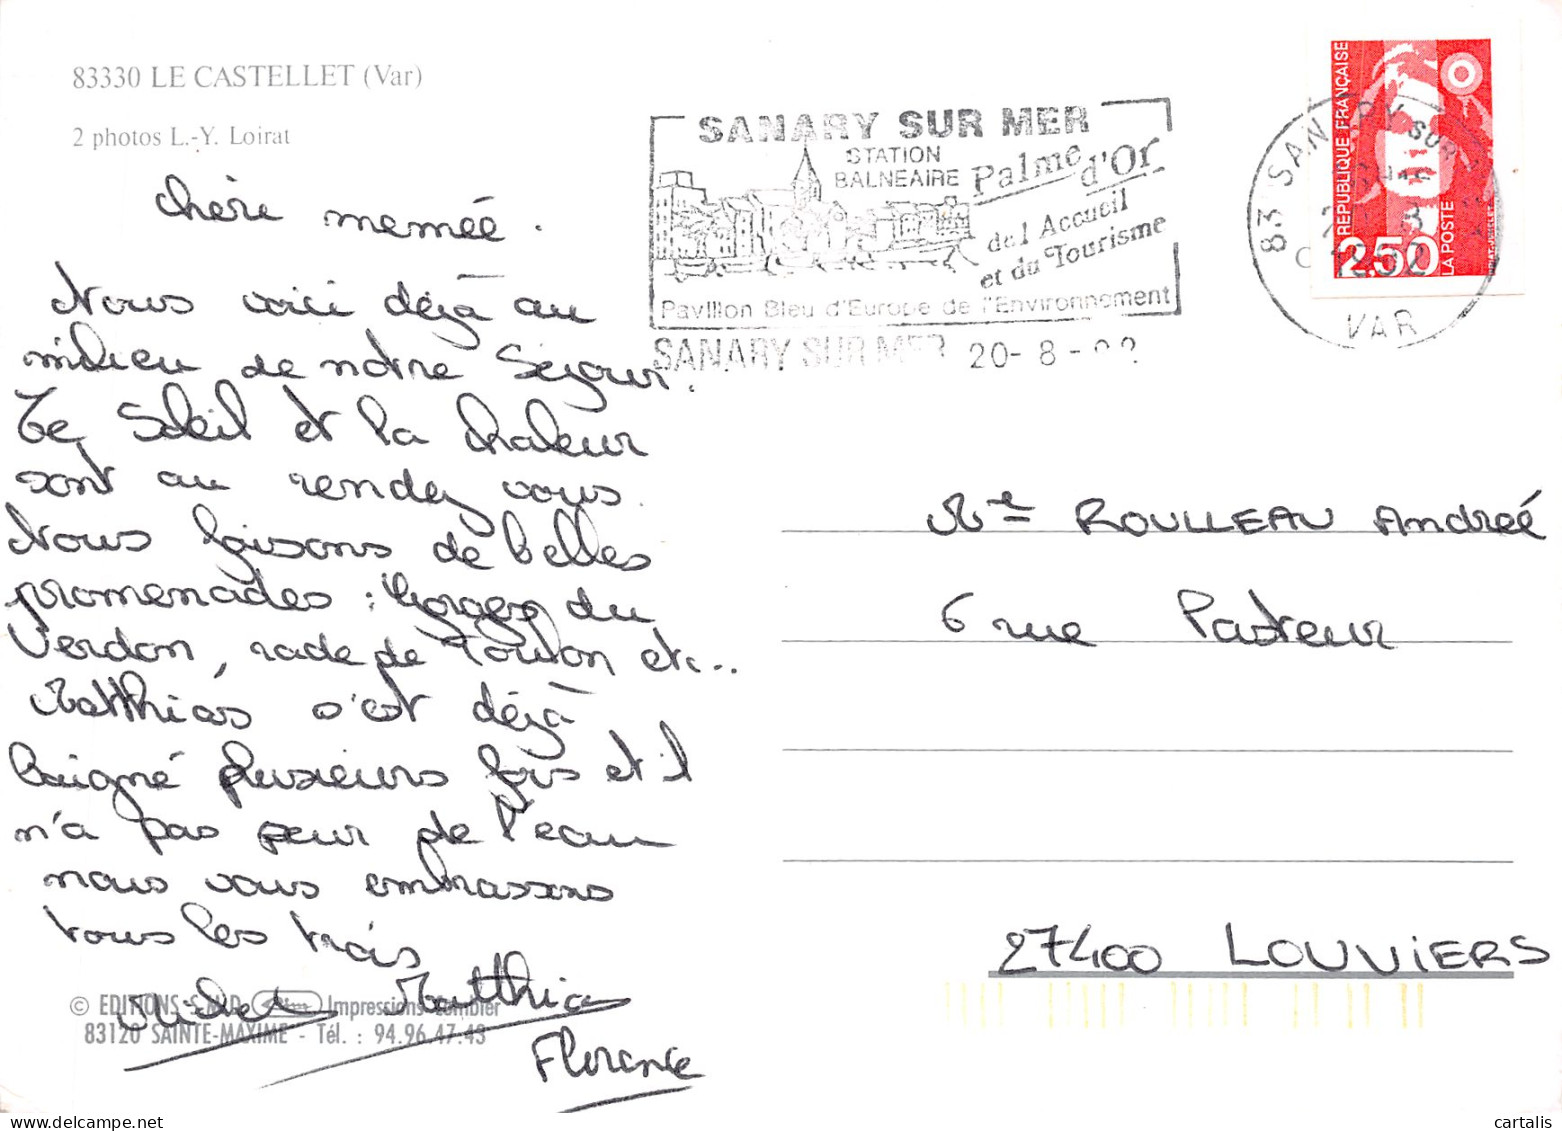 83330 LE CASTELLET (Var)
2 photos L.-Y. Loirat
Chère meméé.
Nous voici déjà au
milieu de notre Séjour.
Le Soleil et la chaleur
sont au rendez vous.
Nous faisons de belles
promenades : Gorges du
Verdon, rade de Toulon etc...
Matthias s'est déjà
baigné plusieurs fois et il
n'a pas peur de l'eau
nous vous embrassons
tous les trois
Matthias
Florence
© EDITIONS S.M.D. Impressions Combier
83120 SAINTE-MAXIME - Tél. : 94.96.47.43
SANARY SUR MER
STATION
BALNEAIRE
Palme d'Or
de l Accueil
et du Tourisme
Pavillon Bleu d'Europe de l'Environnement
SANARY SUR MER 20-8-
83 SANARY SUR
VAR
REPUBLIQUE FRANÇAISE
2,50
LA POSTE
Mme ROULLEAU Andreé
6 rue Pasteur
27400 LOUVIERS
cartalis